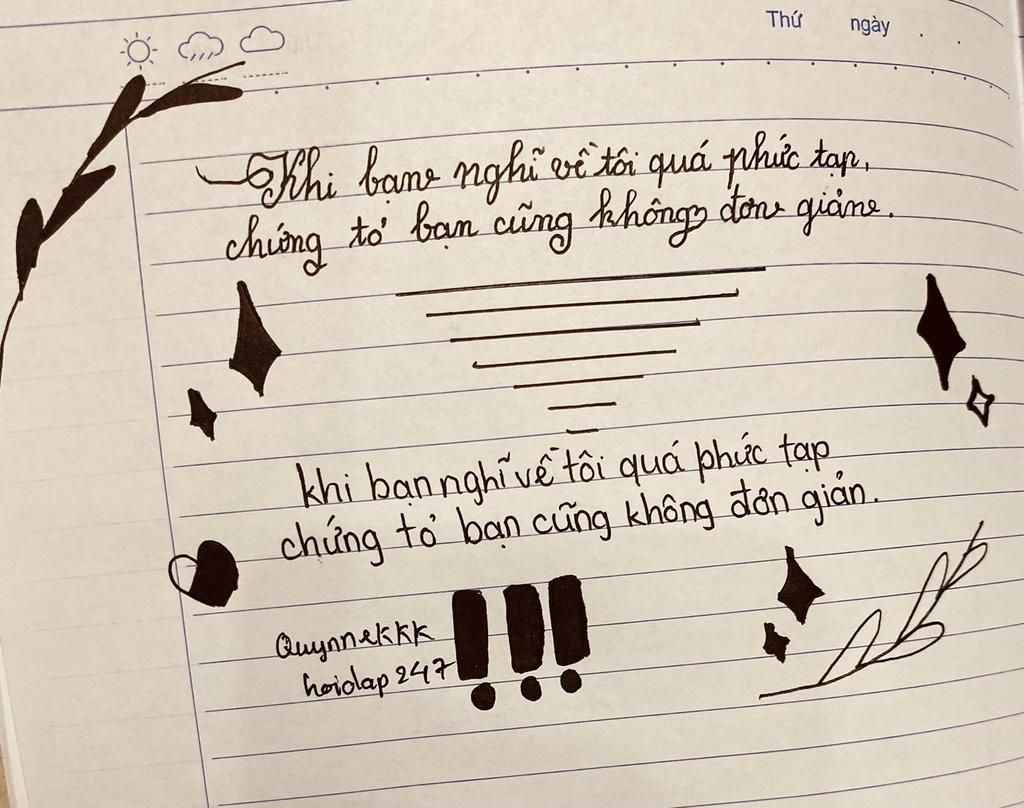 Thứ ngày . .
Khi bạn nghĩ về tôi quá phức tạp,
chứng tỏ bạn cũng không đơn giản.
khi bạn nghĩ về tôi quá phức tạp
chứng tỏ bạn cũng không đơn giản.
Quynnekkk
hoidap 247
!!!